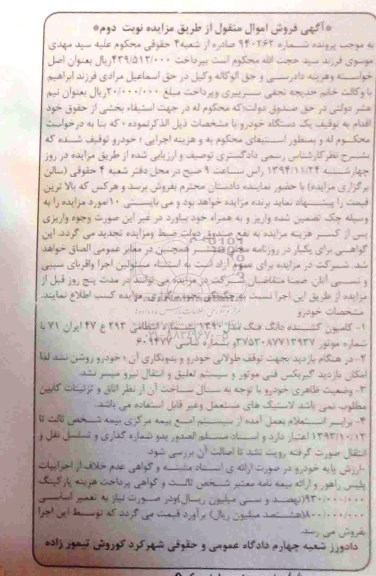 *آگهی فروش اموال منقول از طریق مزایده نوبت دوم*
به موجب پرونده شماره ۹۴۰۲۶۲ صادره از شعبه ۴ حقوقی محکوم علیه سید مهدی
موسوی فرزند سید حجت الله محکوم است بپرداخت ۴۳۹/۵۱۲/۰۰۰ریال بعنوان اصل
خواسته وهزینه دادرسی و حق الوکاله وکیل در حق اسماعیل مرادی فرزند ابراهیم
با وکالت خانم خدیجه نجفی وپرداخت مبلغ ۲۰/۰۰۰/۰۰۰ریال بعنوان نیم
عشر دولتی در حق صندوق دولت؛که محکوم له در جهت استیفاء بخشی از حقوق خود
اقدام به توقیف یک دستگاه خودرو با مشخصات ذیل الذکرنموده ؛ که بنا به درخواست
محکوم له و بمنظور استیفای محکوم به و هزینه اجرایی ؛ خودرو توقیف شده که
بشرح نظرکارشناس رسمی دادگستری توصیف و ارزیابی شده از طریق مزایده در روز
چهارشنبه ۱۳۹۴/۱۱/۲۴ راس ساعت ۹ صبح در محل دفتر شعبه ۴ حقوقی (سالن
برگزاری مزایده) با حضور نماینده دادستان محترم بفروش برسد و هرکس که بالا ترین
قیمت را پیشنهاد نماید برنده مزایده خواهد بود و می بایستی ۱۰٪مورد مزایده را به
وسیله چک تضمین شده واریز و به همراه خود بیاورد در غیر این صورت وجوه واریزی
پس از کسر هزینه مزایده به نفع صندوق دولت ضبط ومزایده تجدید می گردد. این
گواهی برای یکبار در روزنامه همچنین در معابر عمومی الصاق خواهد
شد. شرکت در مزایده برای عموم آزاد است به استثناء مسئولین اجرا واقربای سببی
و نسبی آنان. ضمنا متقاضیان شرکت در مزایده می توانند در مدت پنج روز قبل از
مزایده از طریق این اجرا نسبت به مزایده کسب اطلاع نمایند.
مشخصات خودرو
۱- کامیون کشنده دانگ فنگ مدل ۱۳۹۰ بشماره انتظامی ۲۹۳ ع ۴۷ ایران ۷۱ با
شماره موتور و شماره شاسی ۶۰۹۴۷۷
۲- در هنگام بازدید بجهت توقف طولانی خودرو و بدوبکاری آن ؛ خودرو روشن نشد لذا
امکان بازدید گیربکس فنی موتور و سیستم تعلیق و انتقال نیرو میسر نشد.
۳- وضعیت ظاهری خودرو با توجه به سال ساخت آن از نظر اتاق و تزئینات کابین
مطلوب نمی باشد لاستیک های مستعمل وغیر قابل استفاده می باشد.
۴- برابر استعلام بعمل آمده از سیستم بیمه مرکزی بیمه شخص ثالث تا
۱۳۹۳/۱۰/۱۲ اعتبار دارد و اسناد مسلم الصدور بدو شماره گذاری و تسلسل نقل و
انتقال صورت گرفته رویت نشد تا اصالت آن بررسی شود
-ارزش پایه خودرو در صورت ارائه ی اسناد مثبته و گواهی عدم خلاف از اجراییات
پلیس راهور و ارائه بیمه نامه معتبر شخص ثالث و گواهی پرداخت هزینه پارکینگ
۹۳۰/۰۰۰/۰۰۰(نهصد و سی میلیون ریال)ودر صورت نیاز به تعمیر اساسی
۸۰۰/۰۰۰/۰۰۰(هشتصد میلیون ریال) برآورد قیمت می گردد که توسط این اجرا
بفروش می رسد.
دادورز شعبه چهارم دادگاه عمومی و حقوقی شهرکرد کوروش تیمور زاده